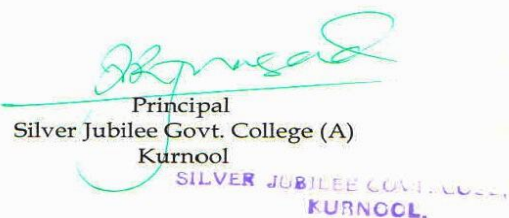 Principal
Silver Jubilee Govt. College (A)
Kurnool
SILVER JUBILEE
KURNOOL.